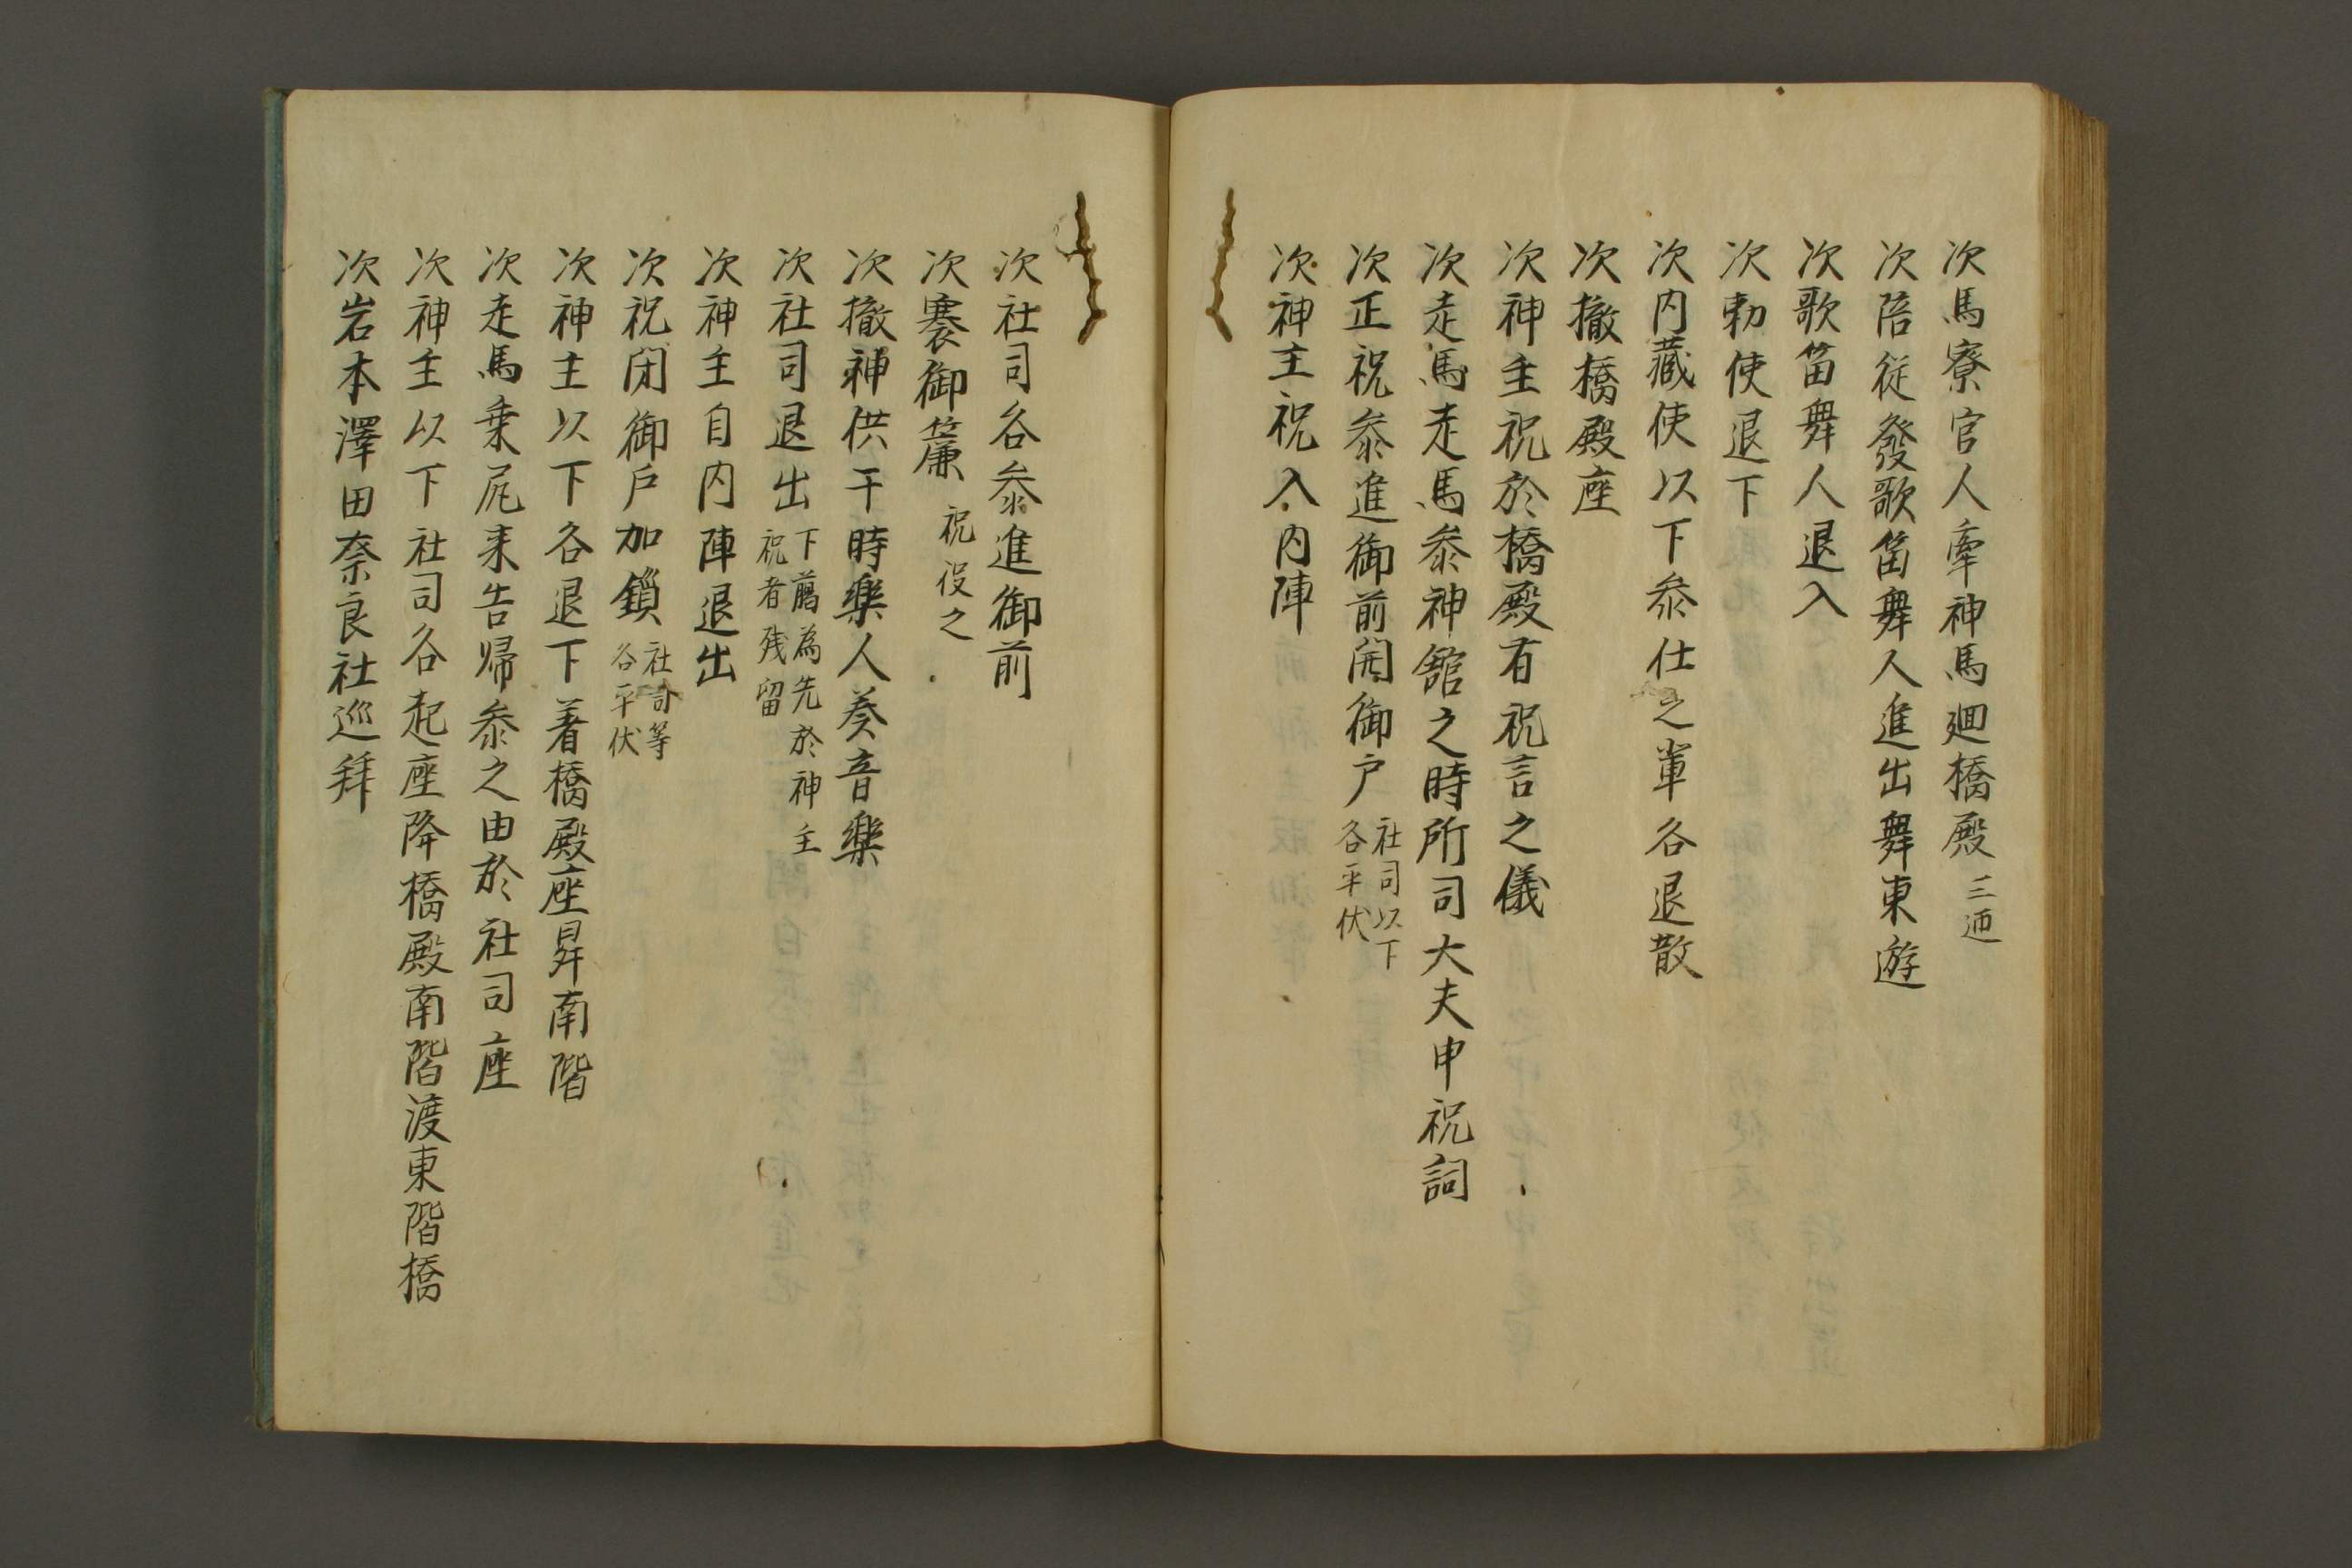 次馬寮官人牽神馬廻橋殿三通
次陪従發歌笛舞人進出舞東遊
次歌笛舞人退入
次勅使退下
次内藏使以下叅仕之軰各退散
次撤橋殿座
次神主祝於橋殿有祝言之儀
次走馬走馬叅神舘之時所司大夫申祝詞
次正祝叅進御前開御戸社司以下各平伏
次神主祝入内陣
次社司各叅進御前
次褰御簾祝役之
次撤神供干時樂人奏音樂
次社司退出下臈為先於神主祝者残留
次神主自内陣退出
次祝閉御戸加鎻社司等各平伏
次神主以下各退下著橋殿座昇南階
次走馬乗尻来告帰叅之由於社司座
次神主以下社司各起座降橋殿南階渡東階橋
次岩本澤田奈良社巡拜